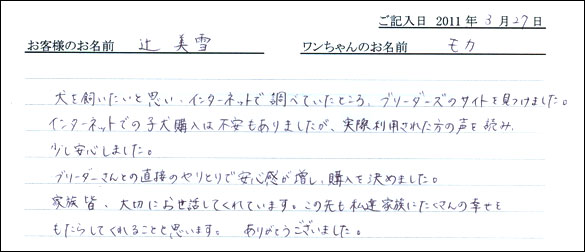 ご記入日 2011年 3月27日
お客様のお名前 辻 美雪 ワンちゃんのお名前 モカ
犬を飼いたいと思い、インターネットで調べていたところ、ブリーダーズのサイトを見つけました。
インターネットでの子犬購入は不安もありましたが、実際利用された方の声を読み、
少し安心しました。
ブリーダーさんとの直接のやりとりで安心感が増し、購入を決めました。
家族皆、大切にお世話してくれています。この先も私達家族にたくさんの幸せを
もたらしてくれることと思います。 ありがとうございました。